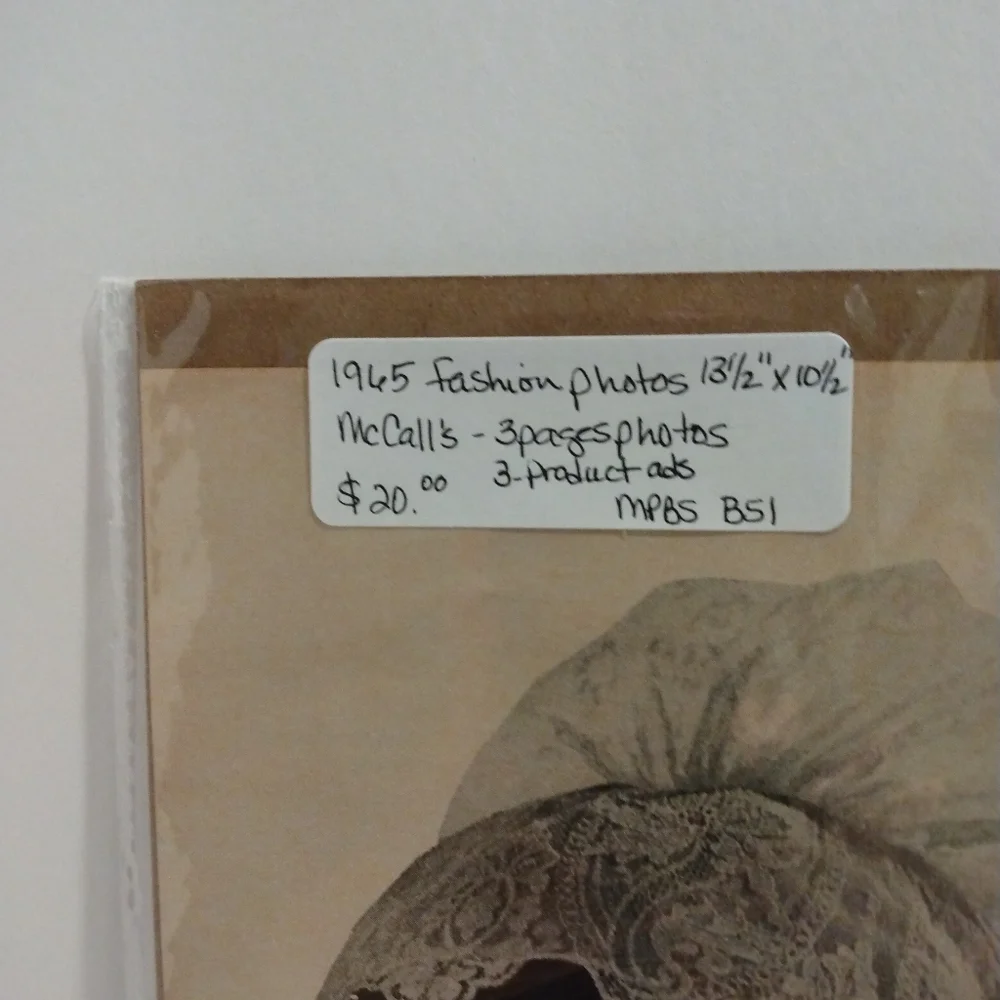 1965 fashion photos 13½" x 10½"
McCall's - 3 pages photos
3-product ads
$20.00
MPBS B51